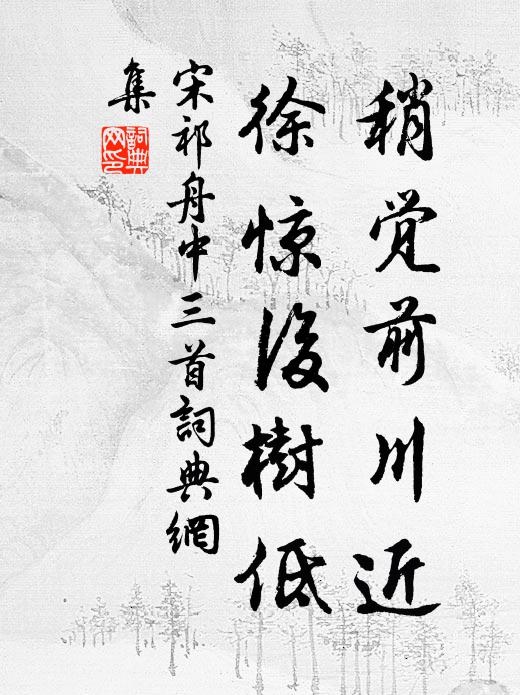 稍觉前川近
徐惊後樹低
宋祁舟中三首詞典網
集
詞典网印